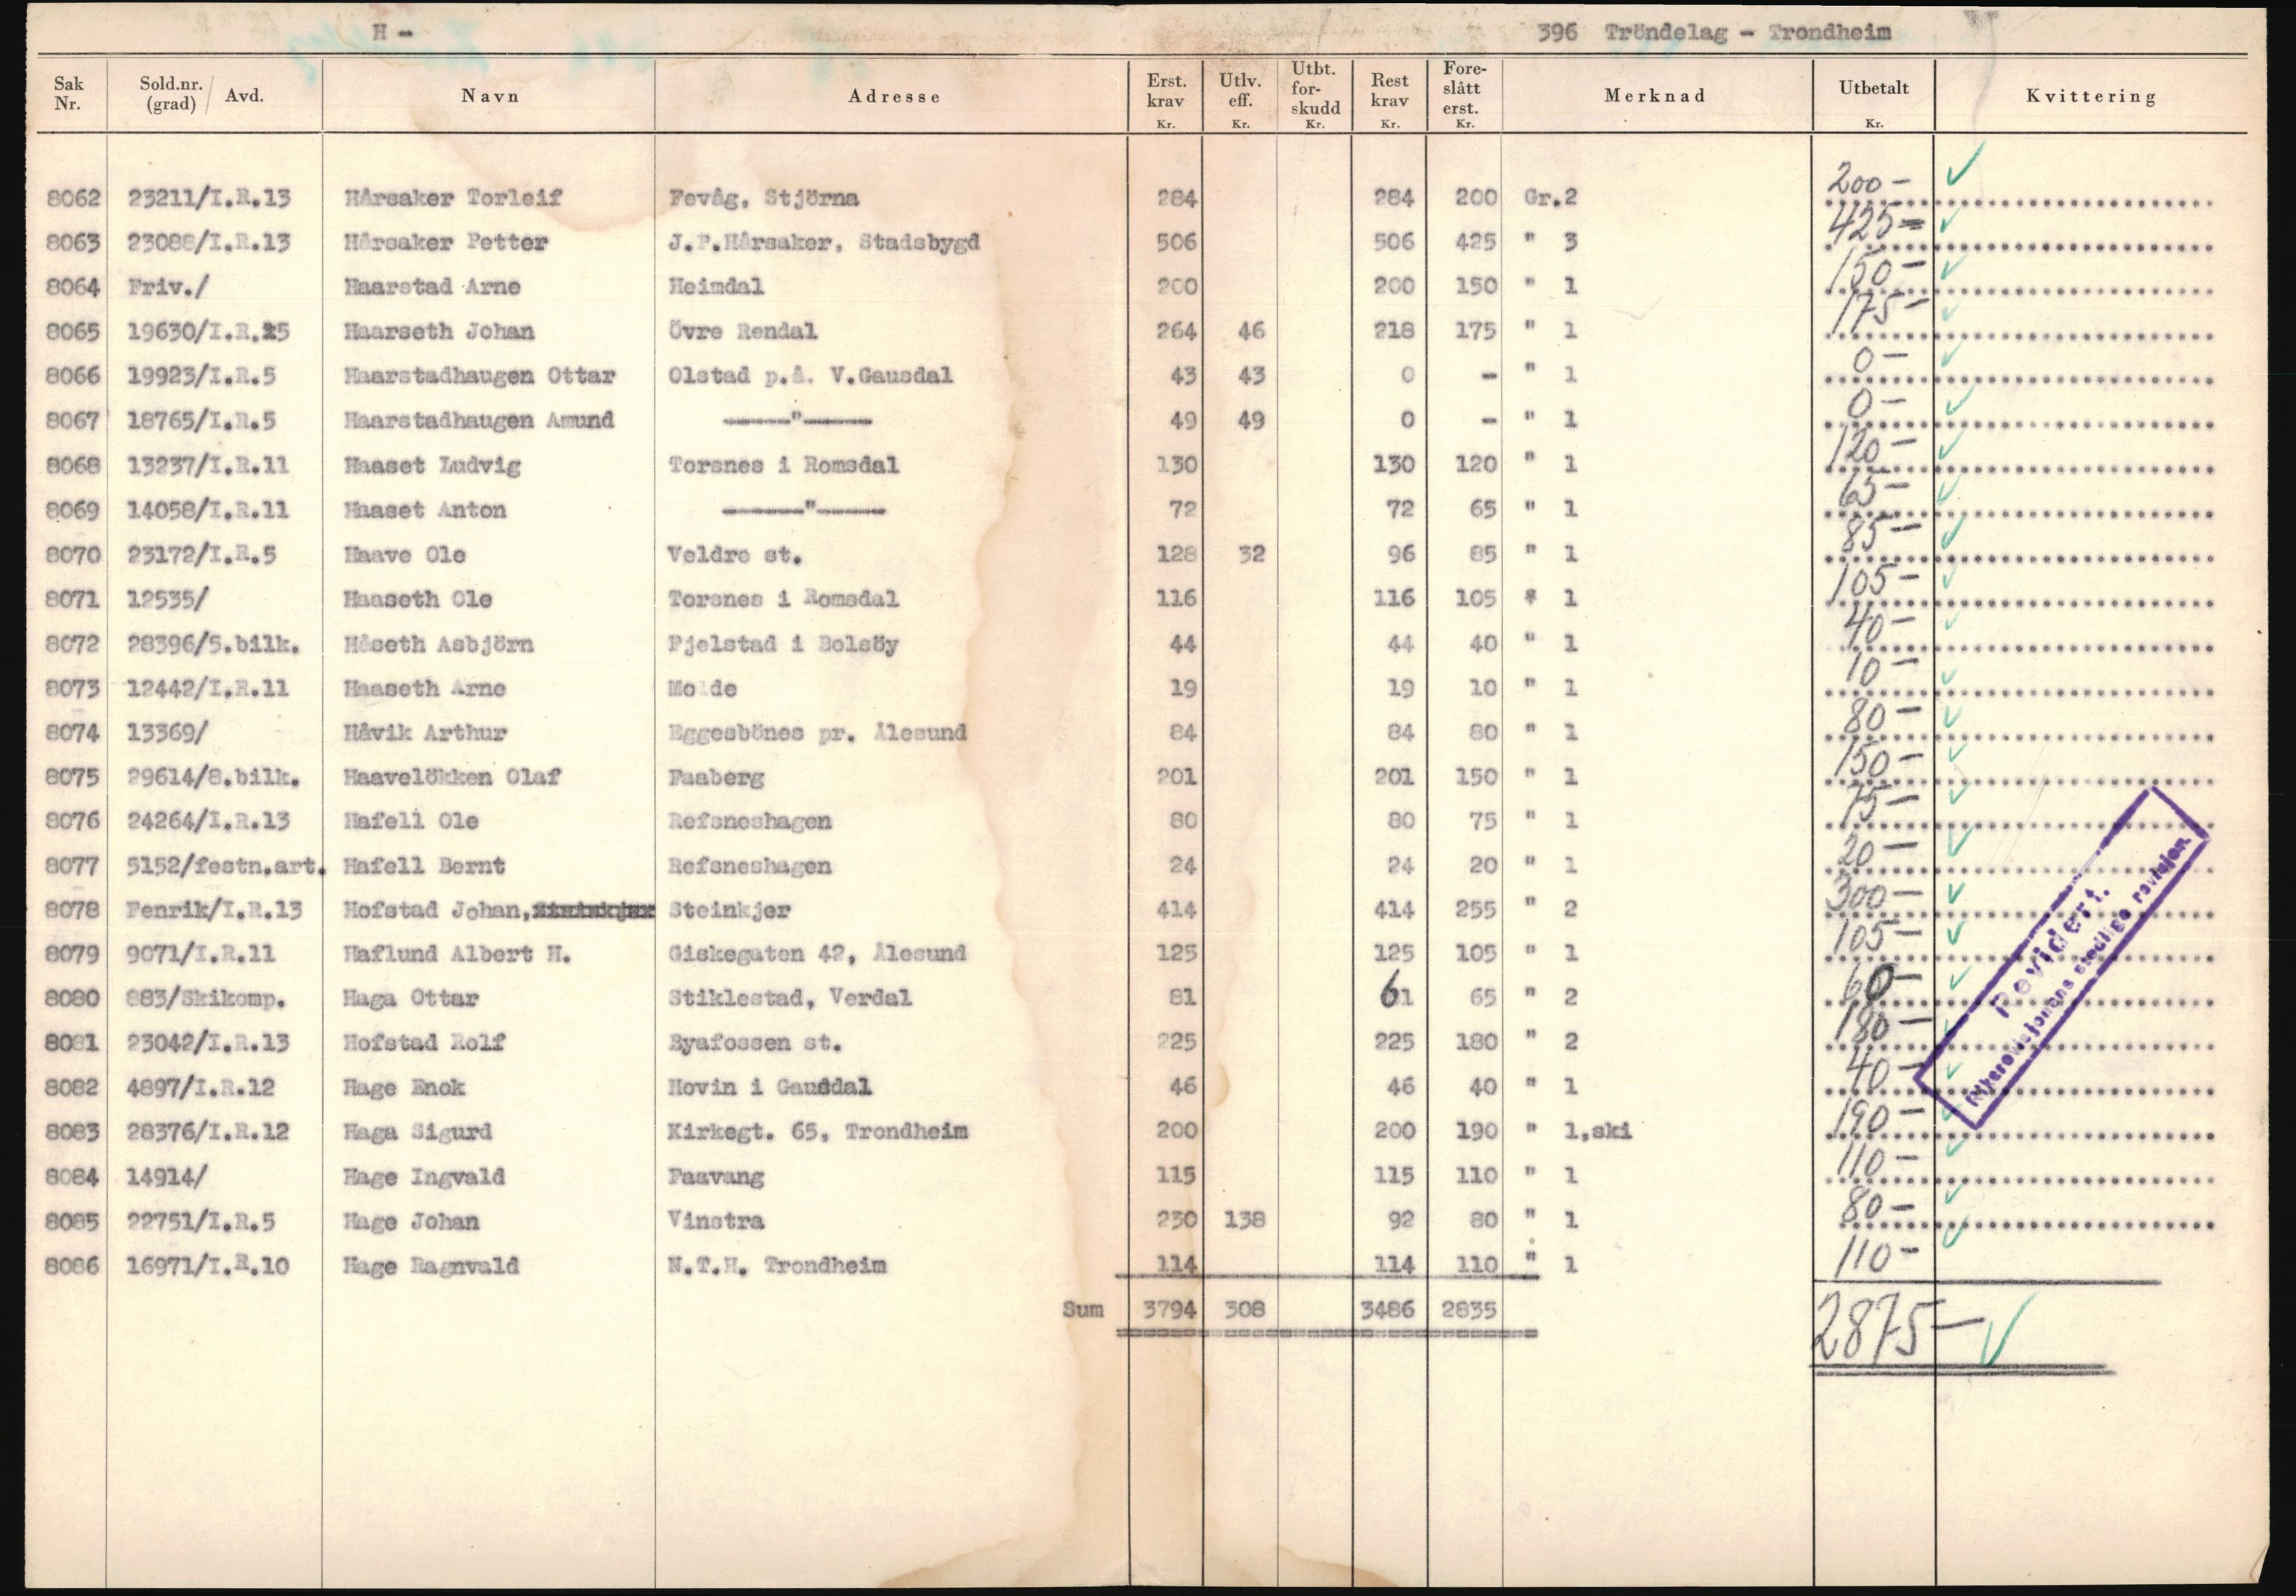 H - 396 Tröndelag - Trondheim
Sak Nr. Sold.nr. (grad) / Avd. Navn Adresse Erst. krav Kr. Utlv. eff. Kr. Utbt. for- skudd Kr. Rest krav Kr. Fore- slått erst. Kr. Merknad Utbetalt Kr. Kvittering
8062 23211/I.R.13 Hårsaker Torleif Fevåg, Stjörna 284 284 200 Gr.2 200-
8063 23088/I.R.13 Hårsaker Petter J.P.Hårsaker, Stadsbygd 506 506 425 " 3 425-
8064 Friv./ Haarstad Arne Heimdal 200 200 150 " 1 150-
8065 19630/I.R.25 Haarseth Johan Övre Rendal 264 46 218 175 " 1 175-
8066 19923/I.R.5 Haarstadhaugen Ottar Olstad p.å. V.Gausdal 43 43 0 - " 1 0-
8067 18765/I.R.5 Haarstadhaugen Amund -----"----- 49 49 0 - " 1 0-
8068 13237/I.R.11 Haaset Ludvig Torsnes i Romsdal 130 130 120 " 1 120-
8069 14058/I.R.11 Haaset Anton ------"----- 72 72 65 " 1 65-
8070 23172/I.R.5 Haave Ole Veldre st. 128 32 96 85 " 1 85-
8071 12535/ Haaseth Ole Torsnes i Romsdal 116 116 105 " 1 105-
8072 28396/5.bilk. Håseth Asbjörn Fjelstad i Bolsöy 44 44 40 " 1 40-
8073 12442/I.R.11 Haaseth Arne Molde 19 19 10 " 1 10-
8074 13369/ Håvik Arthur Eggesbönes pr. Ålesund 84 84 80 " 1 80-
8075 29614/8.bilk. Haavelökken Olaf Faaberg 201 201 150 " 1 150-
8076 24264/I.R.13 Hafell Ole Refsneshagen 80 80 75 " 1 75-
8077 5152/festn.art. Hafell Bernt Refsneshagen 24 24 20 " 1 20-
8078 Fenrik/I.R.13 Hofstad Johan, Steinkjer 414 414 255 " 2 300-
8079 9071/I.R.11 Haflund Albert H. Giskegaten 42, Ålesund 125 125 105 " 1 105-
8080 883/Skikomp. Haga Ottar Stiklestad, Verdal 81 61 65 " 2 60-
8081 23042/I.R.13 Hofstad Rolf Byafossen st. 225 225 180 " 2 180-
8082 4897/I.R.12 Hage Enok Hovin i Gausdal 46 46 40 " 1 40-
8083 28376/I.R.12 Haga Sigurd Kirkegt. 65, Trondheim 200 200 190 " 1,ski 190-
8084 14914/ Hage Ingvald Faavang 115 115 110 " 1 110-
8085 22751/I.R.5 Hage Johan Vinstra 230 138 92 80 " 1 80-
8086 16971/I.R.10 Hage Ragnvald N.T.H. Trondheim 114 114 110 " 1 110-
Sum 3794 308 3486 2835 2875-
Revidert.
Riksrevisjonens stedlige revisjon